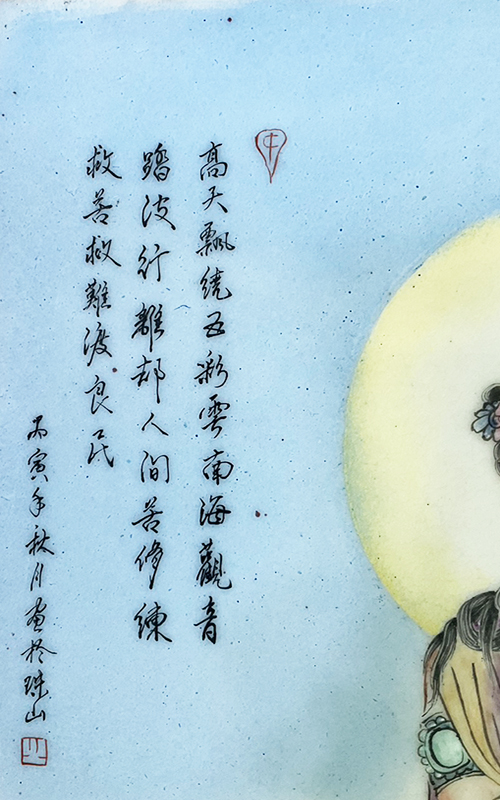 高天飄繞五彩雲南海觀音
踏波行離却人间苦修練
救苦救難渡良民
丙寅年秋月画於珠山